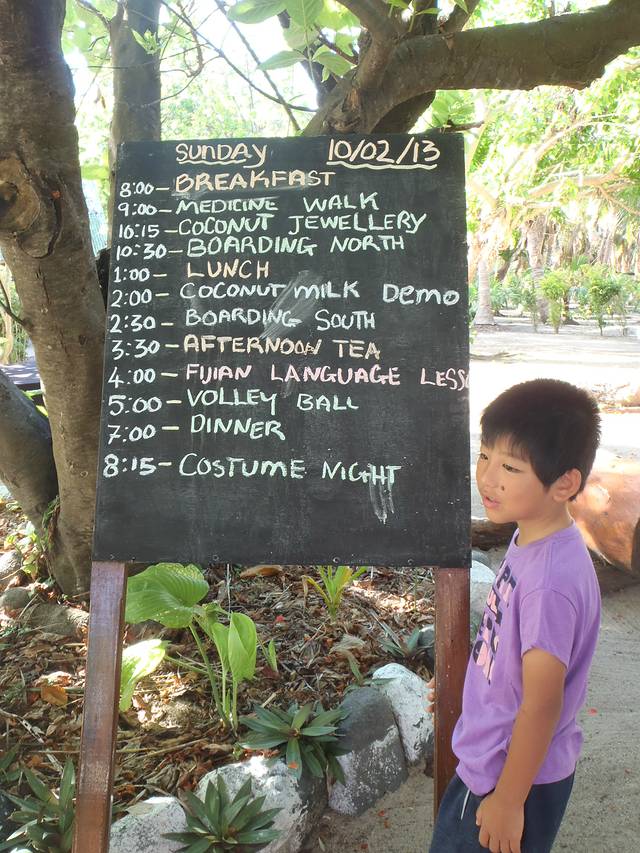 SUNDAY 10/02/13
8:00 - BREAKFAST
9:00 - MEDICINE WALK
10:15 - COCONUT JEWELLERY
10:30 - BOARDING NORTH
1:00 - LUNCH
2:00 - COCONUT MILK Demo
2:30 - BOARDING SOUTH
3:30 - AFTERNOON TEA
4:00 - FIJIAN LANGUAGE LESSO
5:00 - VOLLEY BALL
7:00 - DINNER
8:15 - COSTUME NIGHT